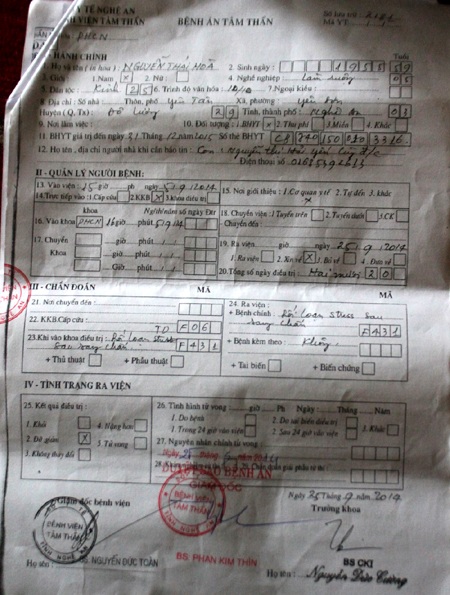 Y TẾ NGHỆ AN
BỆNH VIỆN TÂM THẦN
BỆNH ÁN TÂM THẦN
Số lưu trữ:
Mã YT:
PHCN
I - HÀNH CHÍNH
1. Họ và tên (in hoa): NGUYỄN THÁI HOÀ
2. Sinh ngày: 1955
Tuổi 59
3. Giới: 1. Nam X 2. Nữ:
4. Nghề nghiệp: Làm ruộng 05
5. Dân tộc: Kinh 25 6. Trình độ văn hóa: 7. Ngoại kiều:
8. Địa chỉ: Số nhà: Thôn, phố Yên Tân Xã, phường: Yên Sơn
Huyện (Q, Tx) Đô Lương 29 Tỉnh, thành phố: Nghệ An 03
9. Nơi làm việc: 10. Đối tượng: 1.BHYT 2. Thu phí 3. Miễn 4. Khác
11. BHYT giá trị đến ngày 31 tháng 12 năm 2015 Số thẻ BHYT
12. Họ tên, địa chỉ người nhà khi cần báo tin: Con: Nguyễn Thị
Điện thoại số
II - QUẢN LÝ NGƯỜI BỆNH:
13. Vào viện: 15 giờ ph ngày 5/9/2014
14. Trực tiếp vào: 1. Cấp cứu 2. KKB X 3. Khoa điều trị
15. Nơi giới thiệu: 1. Cơ quan y tế 2. Tự đến 3. khác
khoa Ngh/th/năm số ngày Đtr
16. Vào khoa PHCN giờ phút
17. Chuyển giờ phút
Khoa giờ phút
Giờ phút
18. Chuyển viện: 1. Tuyến trên 2. Tuyến dưới 3. CK
Chuyển đến:
19. Ra viện: giờ ngày 25/9/2014
1. Ra viện 2. Xin về X 3. Bỏ về 4. Đưa về
20. Tổng số ngày điều trị: Hai mươi 20
III - CHẨN ĐOÁN
MÃ
MÃ
21. Nơi chuyển đến:
22. KKB, Cấp cứu: TD F06
23. Khi vào khoa điều trị: Rối loạn stress sau sang chấn F431
+ Thủ thuật + Phẫu thuật
24. Ra viện:
+ Bệnh chính: Rối loạn stress sau sang chấn F431
+ Bệnh kèm theo: Không
+ Tai biến + Biến chứng
IV - TÌNH TRẠNG RA VIỆN
25. Kết quả điều trị:
1. Khỏi 4. Nặng hơn
2. Đỡ giảm X 5. Tử vong
3. Không thay đổi
26. Tình hình tử vong: giờ Ph Ngày Tháng Năm
1. Do bệnh 2. Do tai biến điều trị 3. Khác
1. Trong 24 giờ vào viện 2. Sau 24 giờ vào viện
27. Nguyên nhân chính tử vong:
Ngày 25 tháng
BỆNH ÁN
Ngày 25 Tháng 9 năm 2014
Giám đốc bệnh viện
GIÁM ĐỐC
Trưởng khoa
BỆNH VIỆN
TÂM THẦN
BỆNH VIỆN
TÂM THẦN
TỈNH NGHỆ AN
Họ tên: BS. NGUYỄN ĐỨC TOÀN
BS. PHAN KIM THÌN
BS CKI
Họ tên: Nguyễn Đức Cường